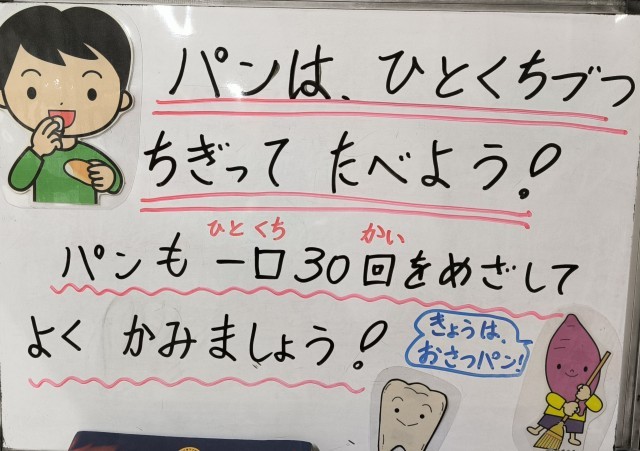 パンは、ひとくちづつ
ちぎって たべよう!
ひとくち かい
パンも 一口30回をめざして
よく かみましょう!
きょうは、
おさつパン!